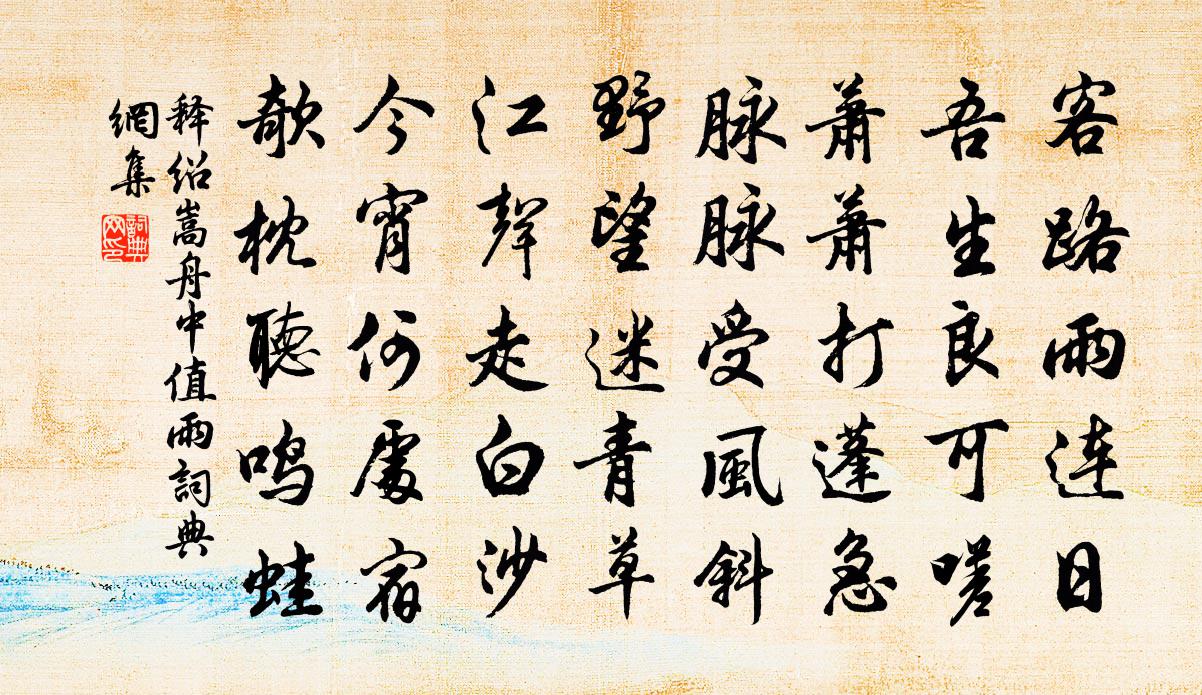 客路雨连日
吾生良可嗟
萧萧打蓬急
脉脉受風斜
野望迷青草
江聲走白沙
今宵何處宿
欹枕聽鸣蛙
释绍嵩舟中值雨詞典
網集
詞典
网印